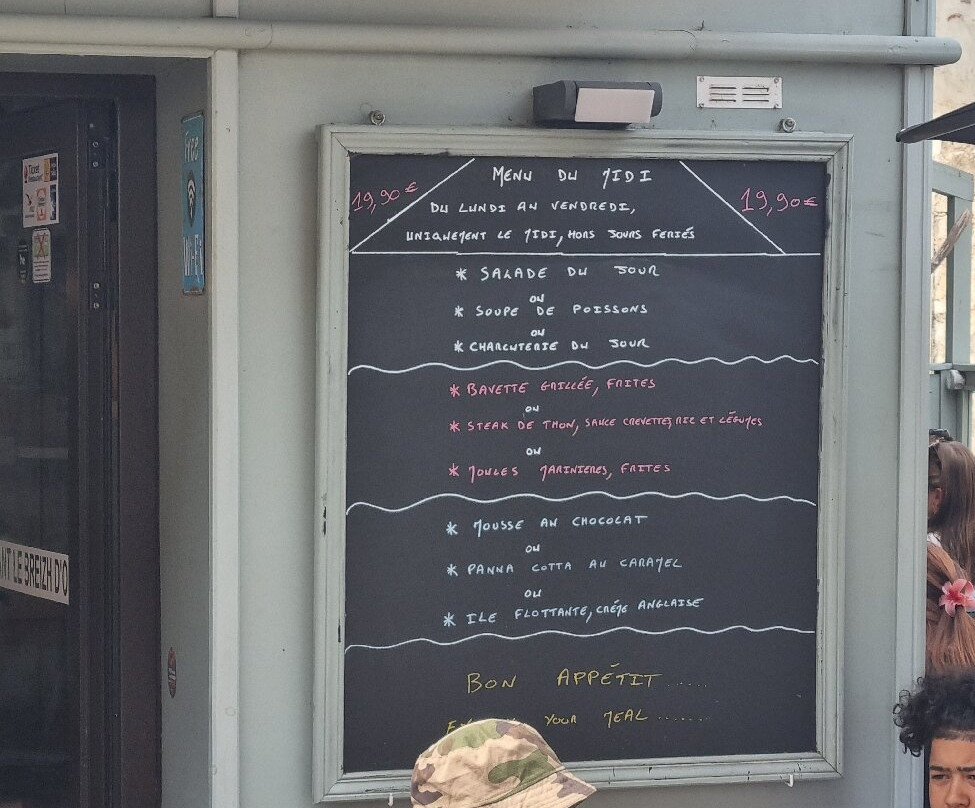 Free
Wi-Fi
Ticket
Restaurant
19,90€
MENU DU MIDI
19,90€
DU LUNDI AU VENDREDI,
UNIQUEMENT LE MIDI, HORS JOURS FERIÉS
* SALADE DU JOUR
OU
* SOUPE DE POISSONS
OU
* CHARCUTERIE DU JOUR
* BAVETTE GRILLÉE, FRITES
OU
* STEAK DE THON, SAUCE CREVETTE, RIZ ET LÉGUMES
OU
* MOULES MARINIERES, FRITES
* MOUSSE AU CHOCOLAT
OU
* PANNA COTTA AU CARAMEL
OU
* ILE FLOTTANTE, CRÉME ANGLAISE
BON APPÉTIT.....
YOUR MEAL.......
LE BREIZH D'O